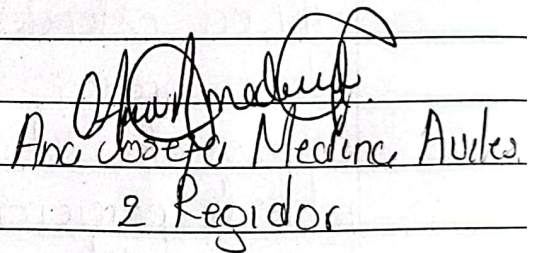 Ana Josefa Medina Aviles
2 Regidor